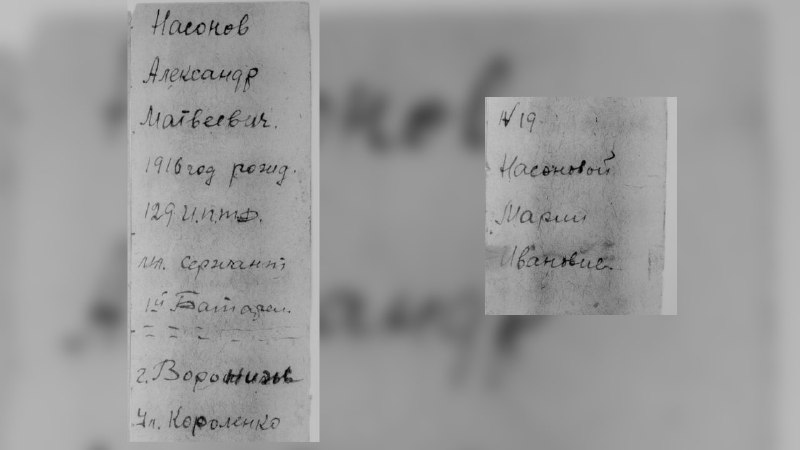 Насонов
Александр
Матвеевич.
1916 год рожд.
129 И.п.т.д.
мл. сержант
1й Батареи.
г. Ворошилов
Ул. Короленко
N 19
Насоновой
Марии
Ивановне.